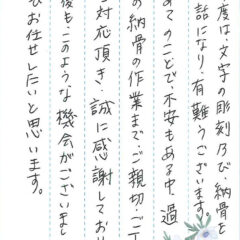 度は、文字の彫刻及び、納骨を
話になり、有難うございます
めてのことで、不安もある中、過
の納骨の作業まで、ご親切、ご丁
対応頂き、誠に感謝してお
後も、このような機会がございまし
お任せしたいと思います。